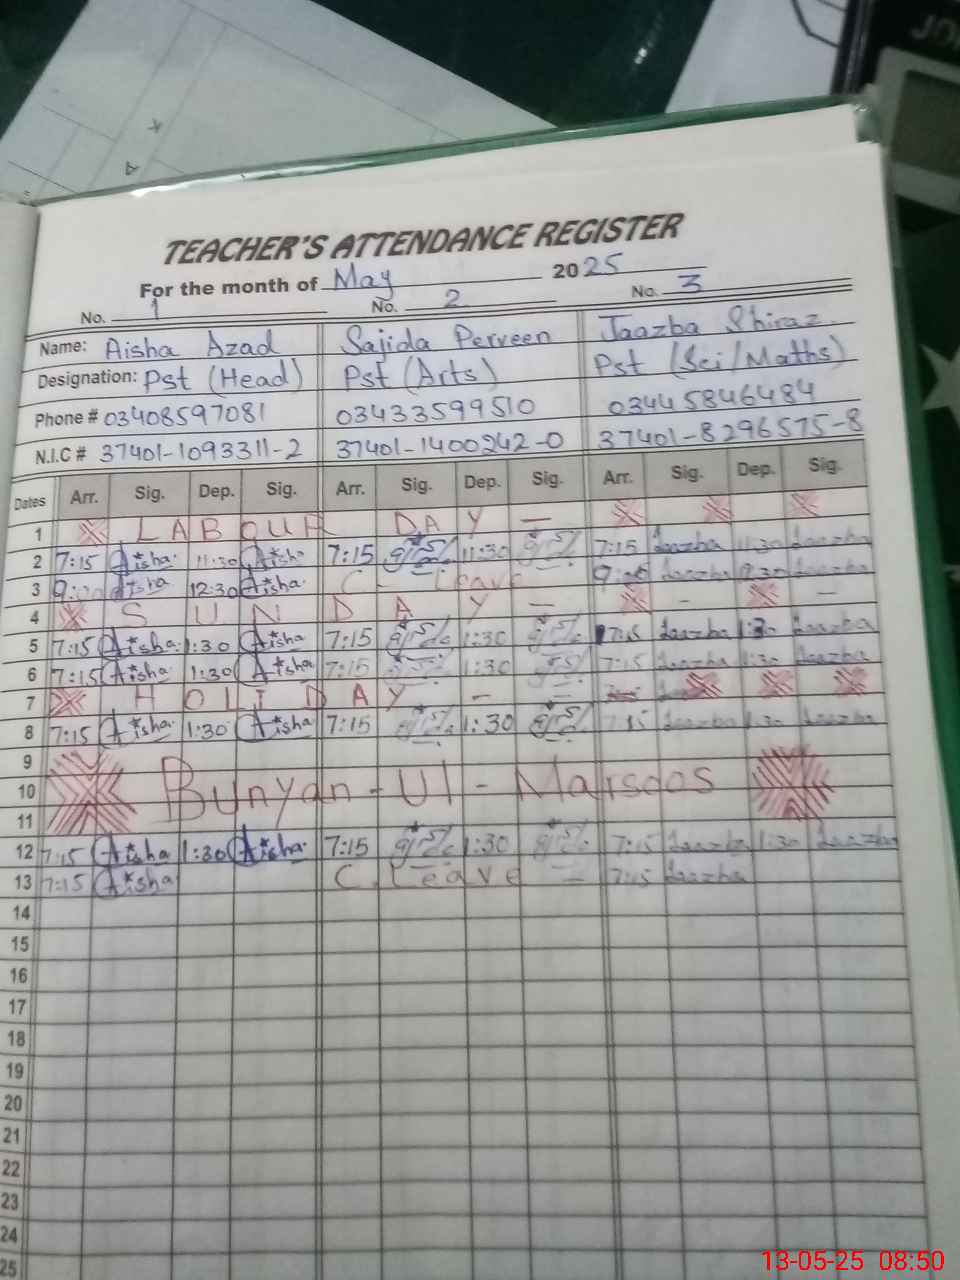 TEACHER'S ATTENDANCE REGISTER
For the month of May 2025
No. 1 No. 2 No. 3
Name: Aisha Azad Sajida Perveen Jaazba Shiraz
Designation: Pst (Head) Pst (Arts) Pst (Sci/Maths)
Phone # 03408597081 03433599510 03445846484
N.I.C # 37401-1093311-2 37401-1400242-0 37401-8296575-8
Dates Arr. Sig. Dep. Sig. Arr. Sig. Dep. Sig. Arr. Sig. Dep. Sig.
1 LABOUR DAY -
2 7:15 Aisha 11:30 Aisha 7:15 11:30 7:15 Jaazba 11:30 Jaazba
3 9:00 Aisha 12:30 Aisha C - Leave Jaazba Jaazba
4 SUNDAY - - -
5 7:15 Aisha 1:30 Aisha 7:15 1:30 7:15 Jaazba 1:30 Jaazba
6 7:15 Aisha 1:30 Aisha 7:15 1:30 7:15 Jaazba 1:30 Jaazba
7 HOLIDAY - -
8 7:15 Aisha 1:30 Aisha 7:15 1:30 7:15 Jaazba 1:30 Jaazba
9
10 Bunyan-Ul-Marsoos
11
12 7:15 Aisha 1:30 Aisha 7:15 1:30 7:15 Jaazba 1:30 Jaazba
13 7:15 Aisha C. Leave - 7:15 Jaazba
14
15
16
17
18
19
20
21
22
23
24
25
13-05-25 08:50